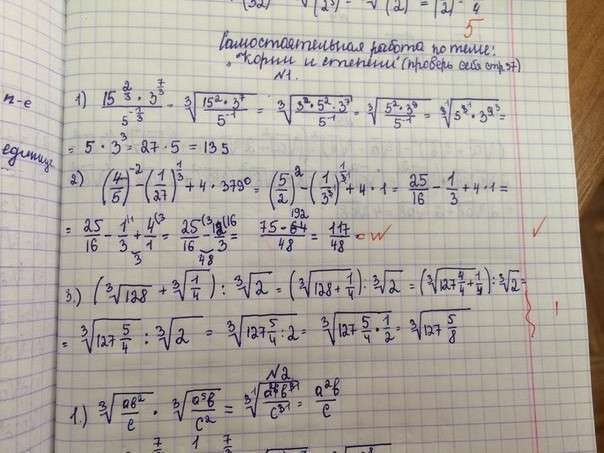 5
Самостоятельная работа по теме:
"Корни и степени" (проверь себя стр 37)
№1.
п-е
1) (15^(2/3) · 3^(7/3))/5^(-1/3) = ∛((15² · 3⁷)/5⁻¹) = ∛((3² · 5² · 3⁷)/5⁻¹) = ∛((5² · 3⁹)/5⁻¹) = ∛(5³ · 3⁹) =
единиц
= 5 · 3³ = 27 · 5 = 135
2) (4/5)⁻² - (1/27)^(1/3) + 4 · 379⁰ = (5/2)² - (1/3³)^(1/3) + 4 · 1 = 25/16 - 1/3 + 4 · 1 =
= 25/16 - 1/3 + 4/1 = 25/16 - = 75 - 48 = 117/48
3.) (∛128 + ∛(1/4)) : ∛2 = (∛(128 + 1/4)) : ∛2 = (∛(127 4/4 + 1/4)) : ∛2 =
= ∛(127 5/4) : ∛2 = ∛(127 5/4 : 2) = ∛(127 5/4 · 1/2) = ∛(127 5/8)
№2
1.) ∛(ab²/c) · ∛(a⁵b/c²) = ∛(a⁶b³/c³) = a²b/c